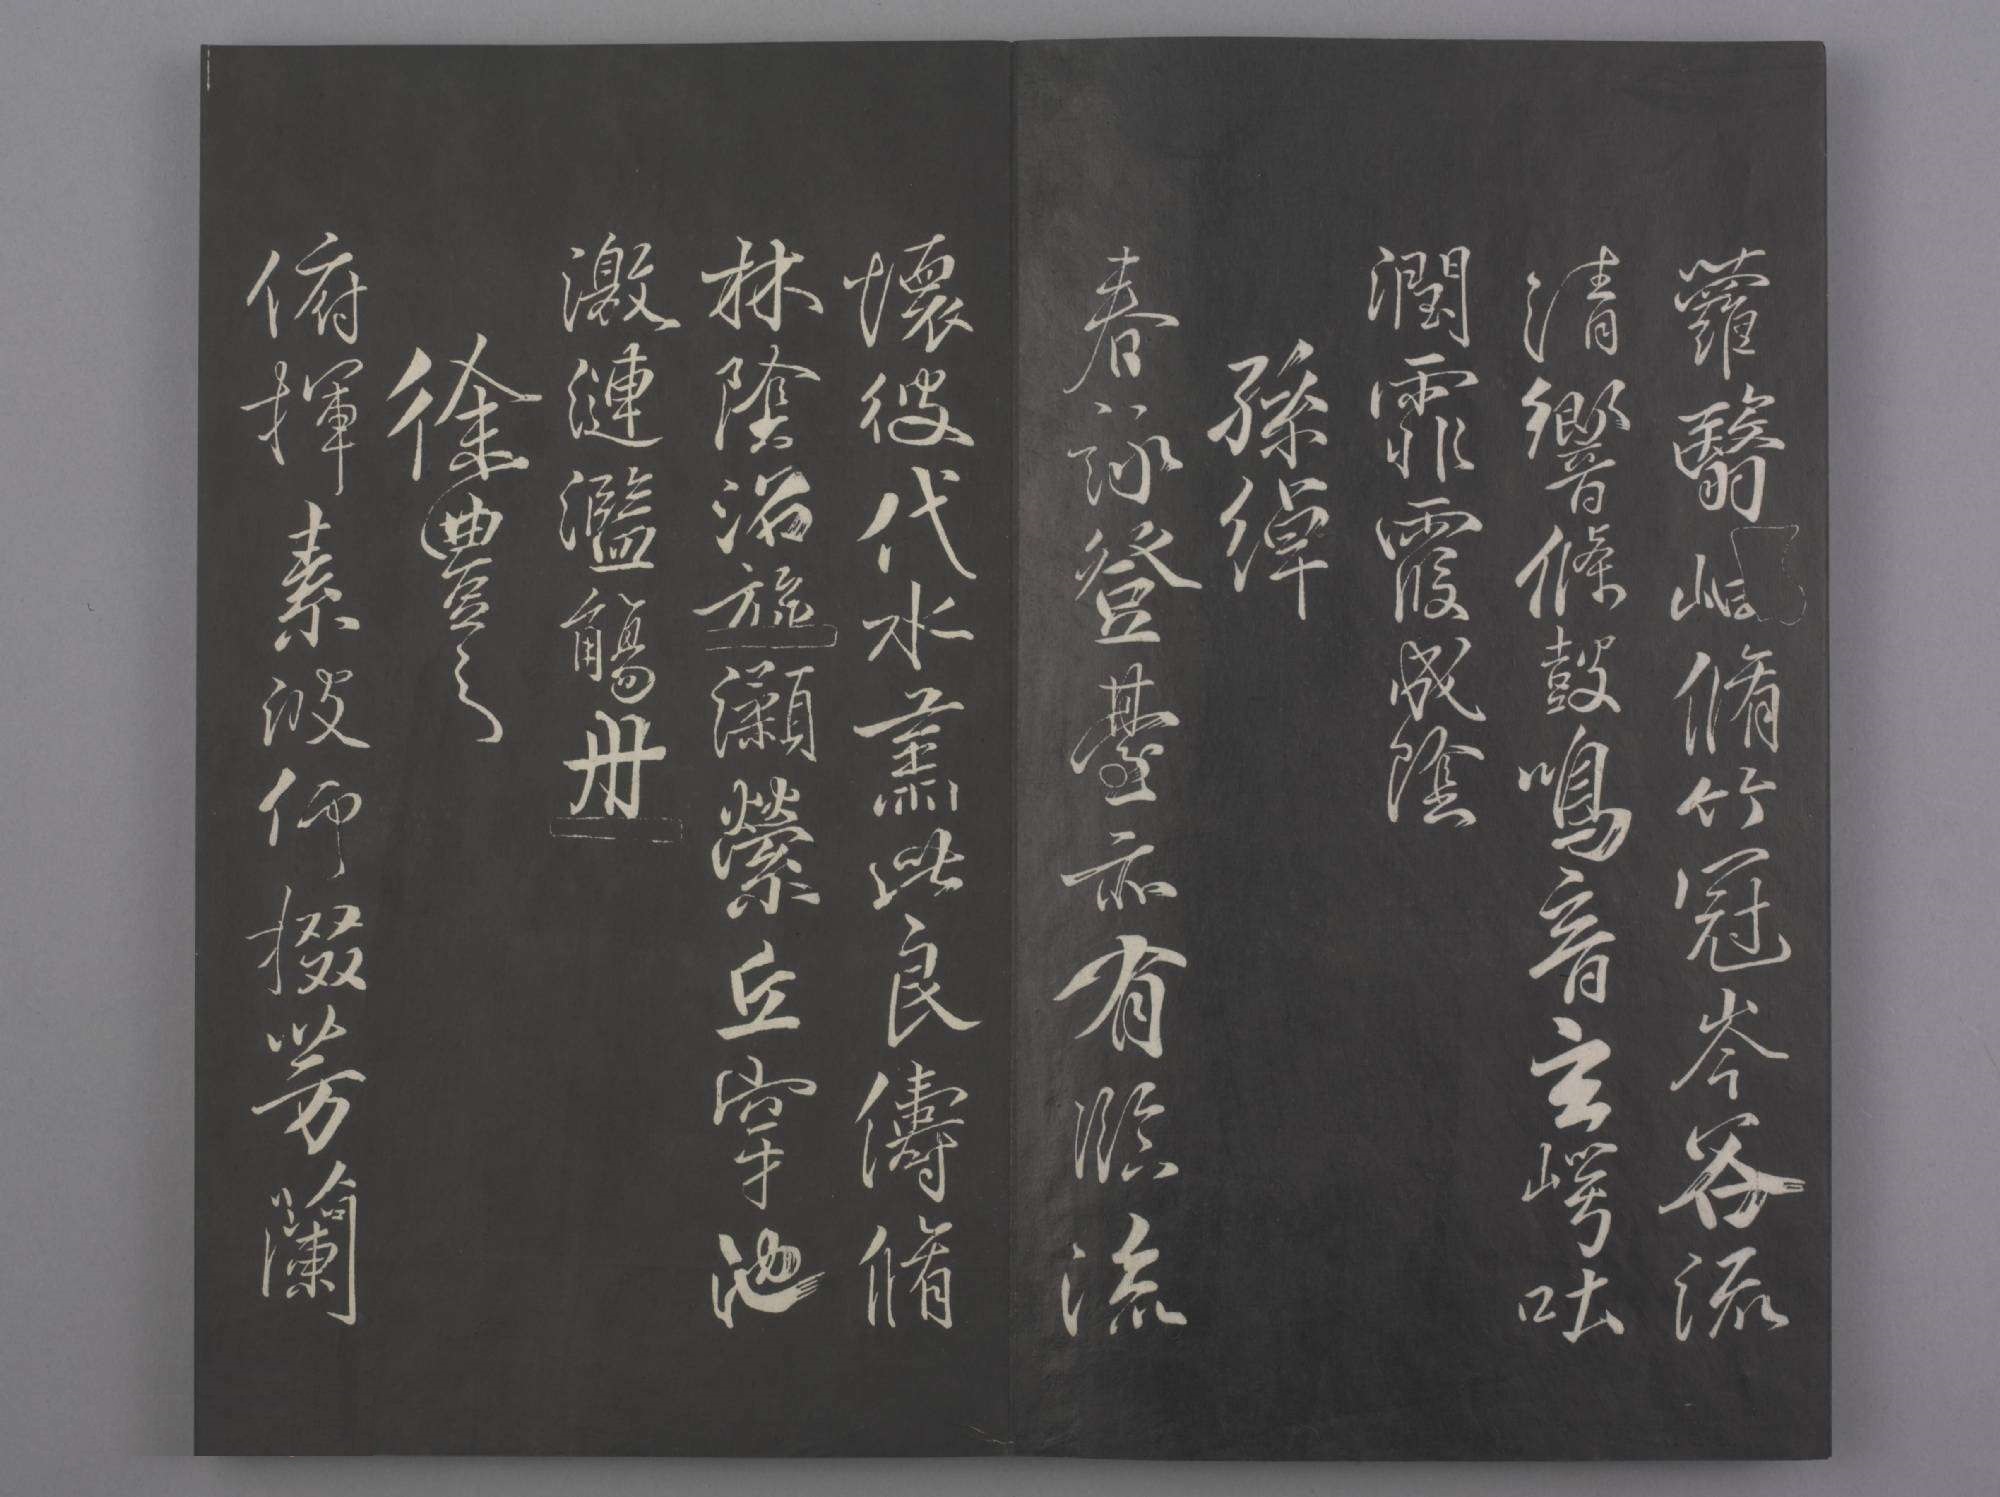 蘿翳岫脩竹冠岑谷流
清響條鼓鳴音玄崿吐
潤霏霧成陰
孫綽
春詠登臺亦有臨流
懷彼伐木肅此良儔脩
林陰沼旋瀨縈丘穿池
激漣濫觴舟
徐豐之
俯揮素波仰掇芳蘭